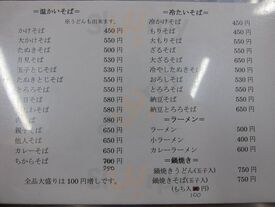 =温かいそば=
※うどんも出来ます。
かけそば 450円
大かけそば 550円
たぬきそば 500円
月見そば 530円
玉子とじそば 530円
たぬきとじそば 550円
とろろそば 550円
そば 550円
そば 550円
そば
親子そば 650円
他人そば 650円
カレーそば 650円
ちからそば 700円
750
全品大盛りは100円増しです。
=冷たいそば=
冷かけそば 450円
もりそば 450円
大もりそば 550円
ざるそば 550円
大ざるそば 650円
冷やしたぬきそば 550円
おろしそば 550円
とろろそば 550円
納豆そば 550円
納豆とろろそば 650円
=ラーメン=
ラーメン 500円
小ラーメン 400円
カレーラーメン 600円
=鍋焼き=
鍋焼きうどん(玉子入) 750円
鍋焼きそば(玉子入) 750円
(もち入 円)
100